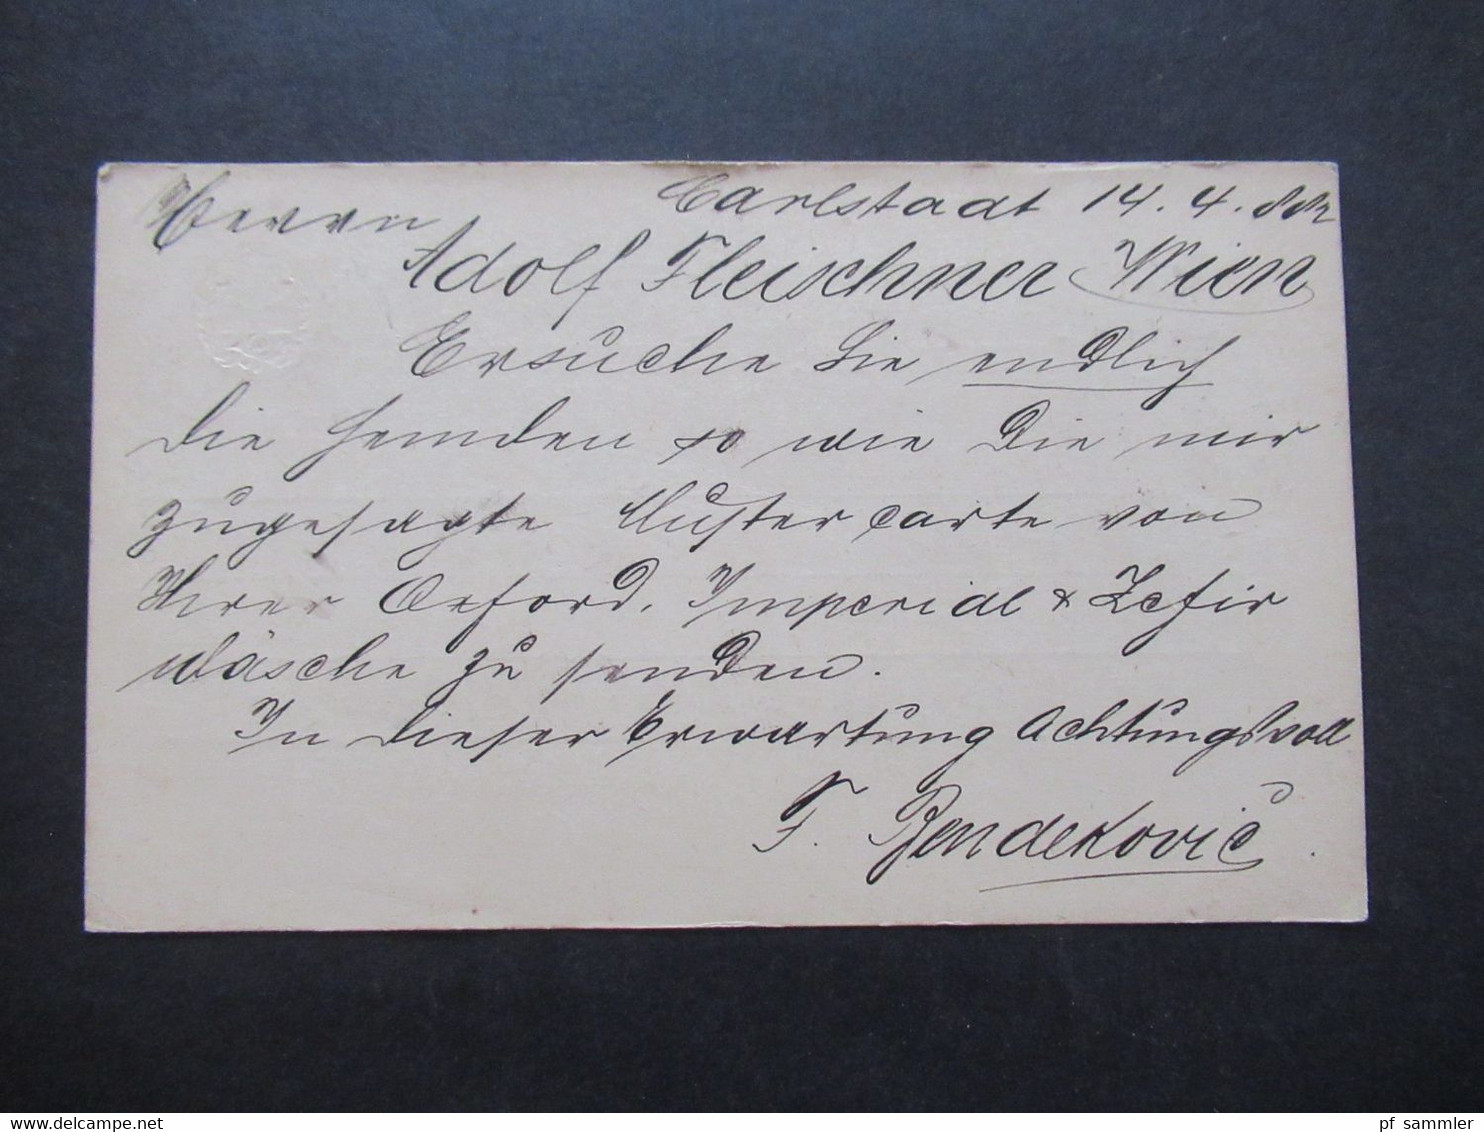 Herrn Carlstadt 14. 4. 882
Adolf Fleischner Wien
Ersuche Sie endlich
die Hemden so wie die mir
zugesagte Muster carte von
Ihrer Oxford, Imperial & Zefir
wäsche zu senden.
In dieser Erwartung Achtungsvoll
F. Bendeković
www.delcampe.net
pf_sammler